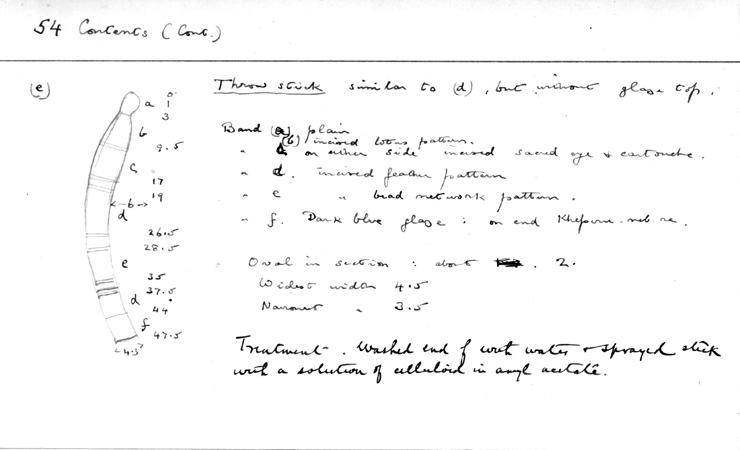 54 Contents (Cont.)
(e)
Throw stick similar to (d), but without glaze top.
Band (a) plain
(b) incised lotus pattern.
" c on either side incised sacred eye + cartouche.
" d. incised feather pattern
" e " bead network pattern.
" f. Dark blue glaze : on end Kheperu-neb-re.
Oval in section : about 2.
Widest width 4.5
Narrowest " 3.5
Treatment. Washed end f with water + sprayed stick
with a solution of celluloid in amyl acetate.
0
a 1
3
b
9.5
c
17
19
←6→
d
26.5
28.5
e
35
37.5
d
44
f
47.5
4.5